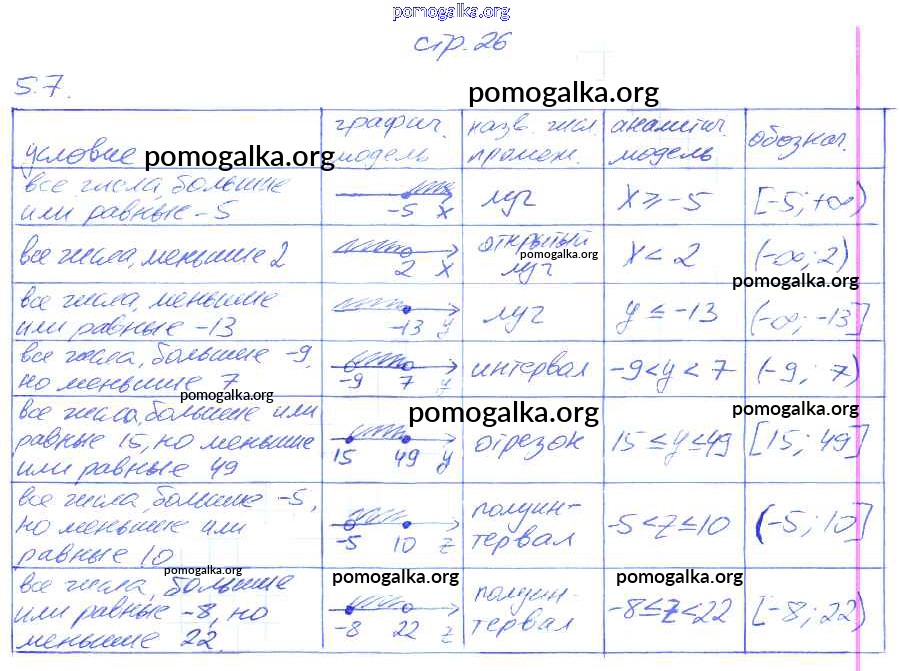 pomogalka.org
стр. 26
5.7.
pomogalka.org
условие pomogalka.org
графич. модель
назв. числ. промеж.
аналитич. модель
обознач.
все числа, большие
или равные -5
-5 x
луч
x ≥ -5
[-5; +∞)
все числа, меньшие 2
2 x
открытый
pomogalka.org
луч
x < 2
(-∞; 2)
pomogalka.org
все числа, меньшие
или равные -13
-13 y
луч
y ≤ -13
(-∞; -13]
все числа, большие -9,
но меньшие 7
pomogalka.org
-9 7 y
интервал
-9 < y < 7
(-9; 7)
все числа, большие или
равные 15, но меньшие
или равные 49
pomogalka.org
15 49 y
отрезок
15 ≤ y ≤ 49
pomogalka.org
[15; 49]
все числа, большие -5,
но меньшие или
равные 10
pomogalka.org
-5 10 z
полуин-
тервал
-5 < z ≤ 10
(-5; 10]
все числа, большие
или равные -8, но
меньшие 22
pomogalka.org
-8 22 z
полуин-
тервал
pomogalka.org
-8 ≤ z < 22
[-8; 22)